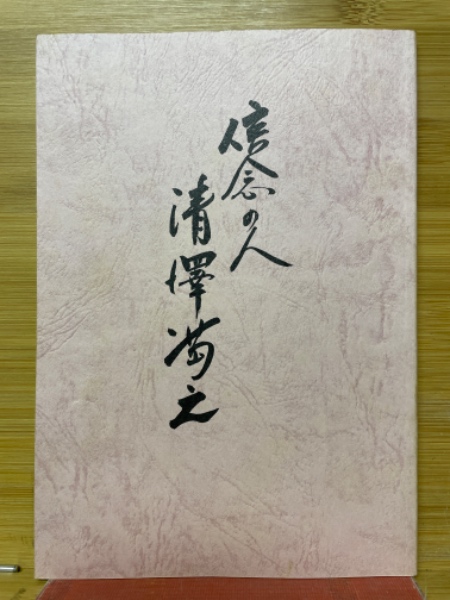 信念の人
清澤満之